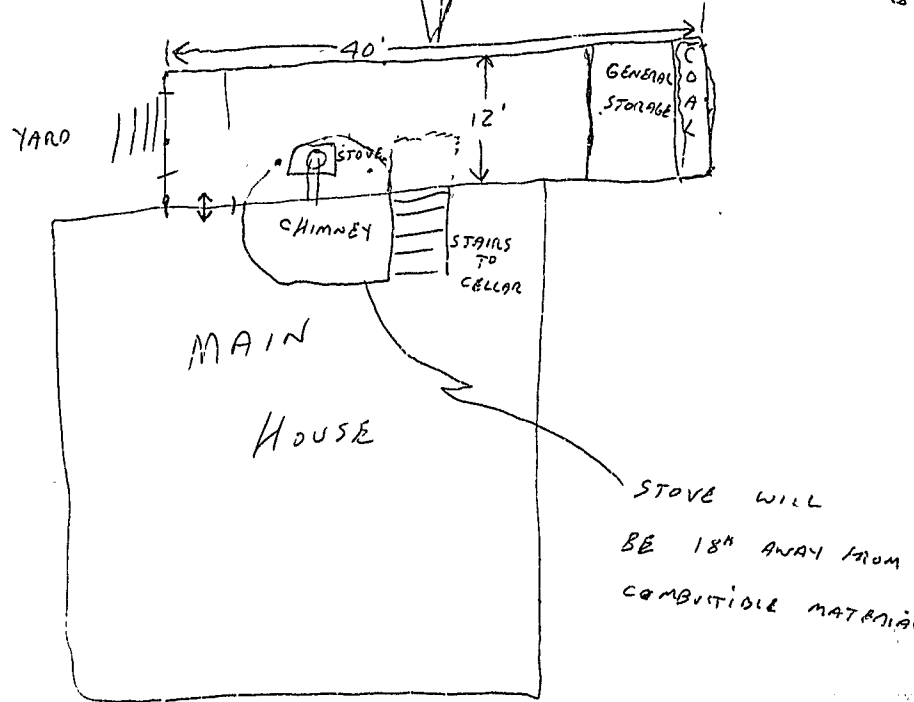 40'
YARD
12'
GENERAL
STORAGE
COAL
STOVE
CHIMNEY
STAIRS
TO
CELLAR
MAIN
HOUSE
STOVE WILL
BE 18" AWAY FROM
COMBUSTIBLE MATERIAL